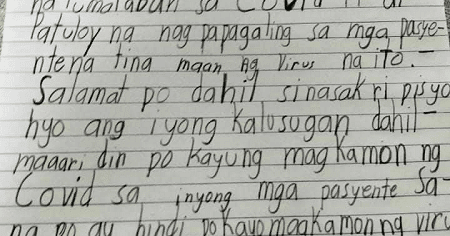 na lumalaban sa Covid
Patuloy na nag papagaling sa mga pasye-
nte na tina maan Ag Virus na ito.-
Salamat po dahil sinasak ri pisyo
hyo ang iyong Kalusugan dahil-
maaari din po Kayung mag Kamon ng
Covid sa inyong mga pasyente Sa-
na po ay hindi po Kayo magkamon ng viru